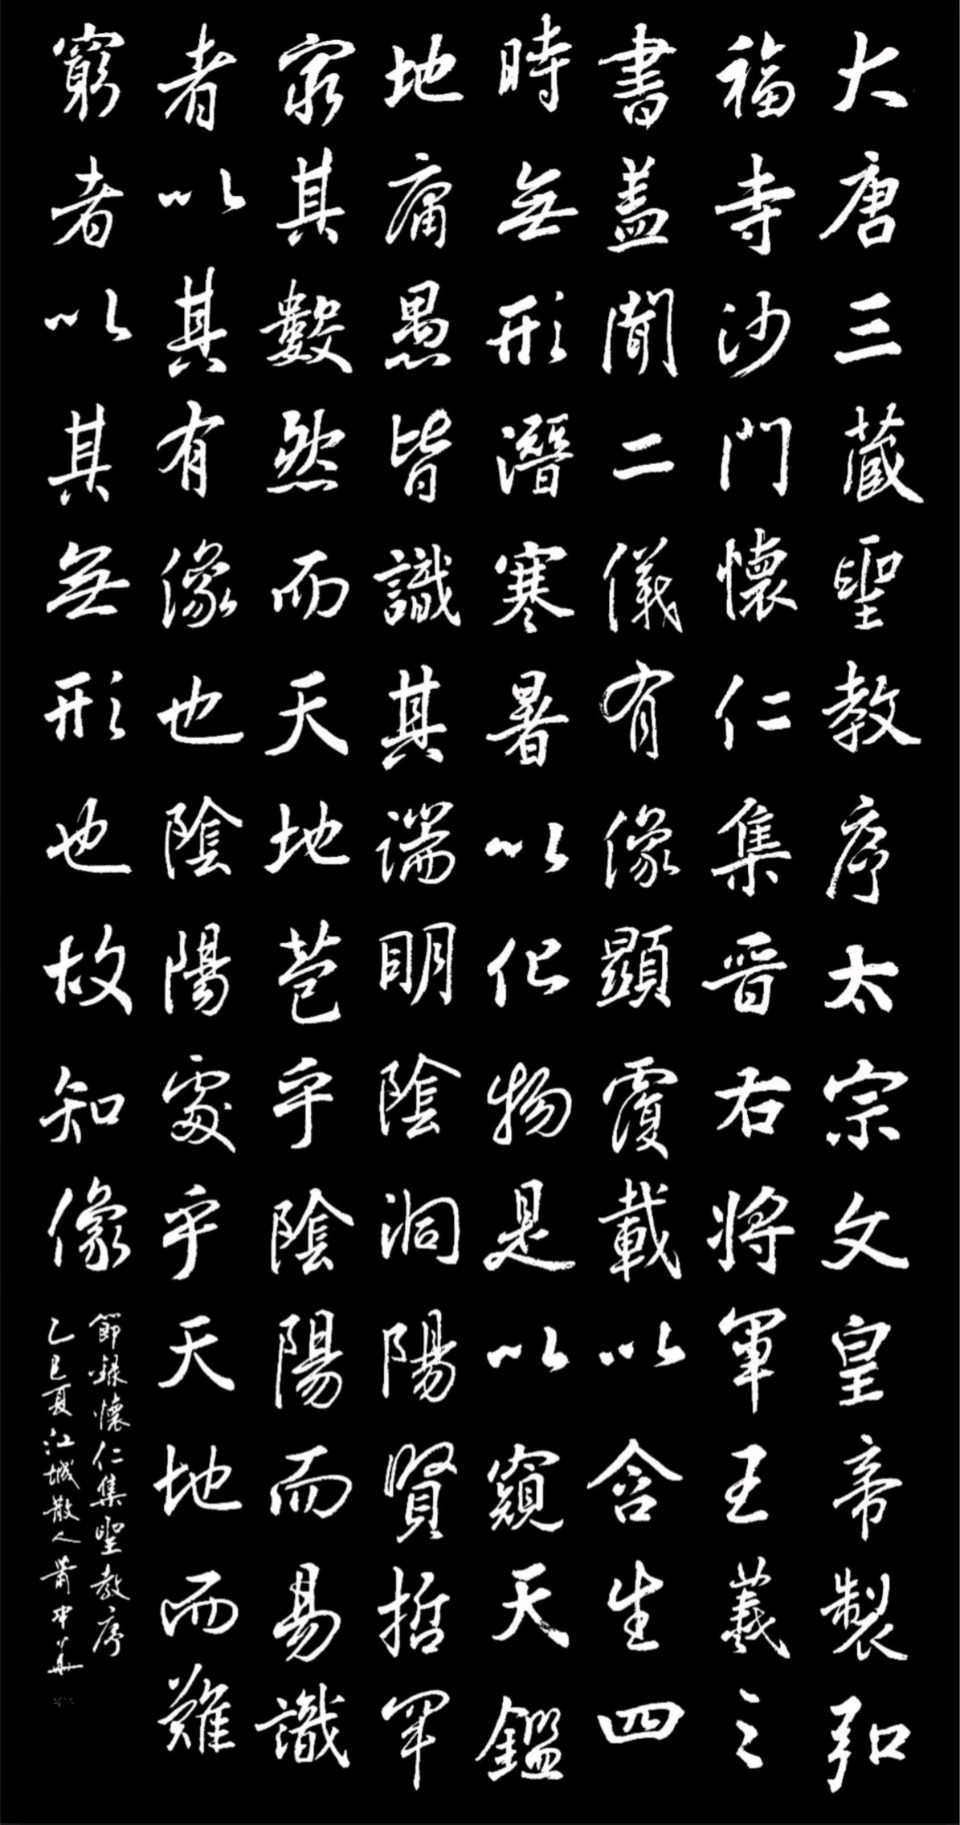 大唐三藏聖教序太宗文皇帝製弘
福寺沙門懷仁集晋右將軍王羲之
書盖聞二儀有像顯覆載以含生四
時無形潛寒暑以化物是以窺天鑑
地庸愚皆識其端明陰洞陽賢哲罕
窮其數然而天地苞乎陰陽而易識
者以其有像也陰陽處乎天地而難
窮者以其無形也故知像
節錄懷仁集聖教序
乙巳夏江城散人